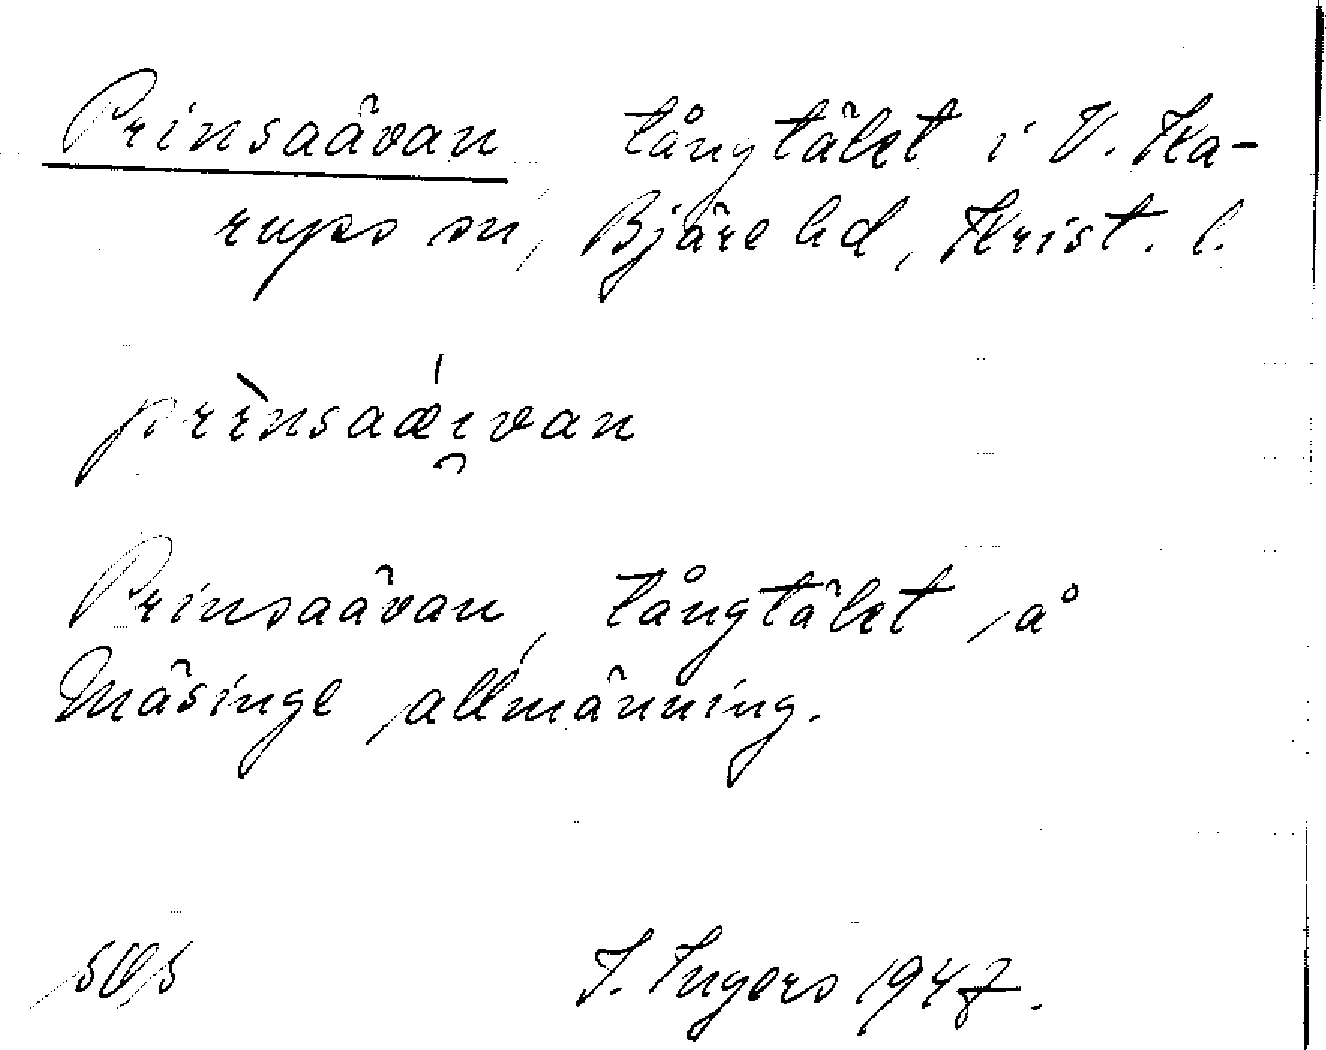 Prinsaävan, tångtäkt i V. Ka-
rups sn, Bjäre hd, Krist. l.
prìnsaǽvan
Prinsaävan, tångtäkt på
Mäsinge allmänning.
I. Ingers 1947.